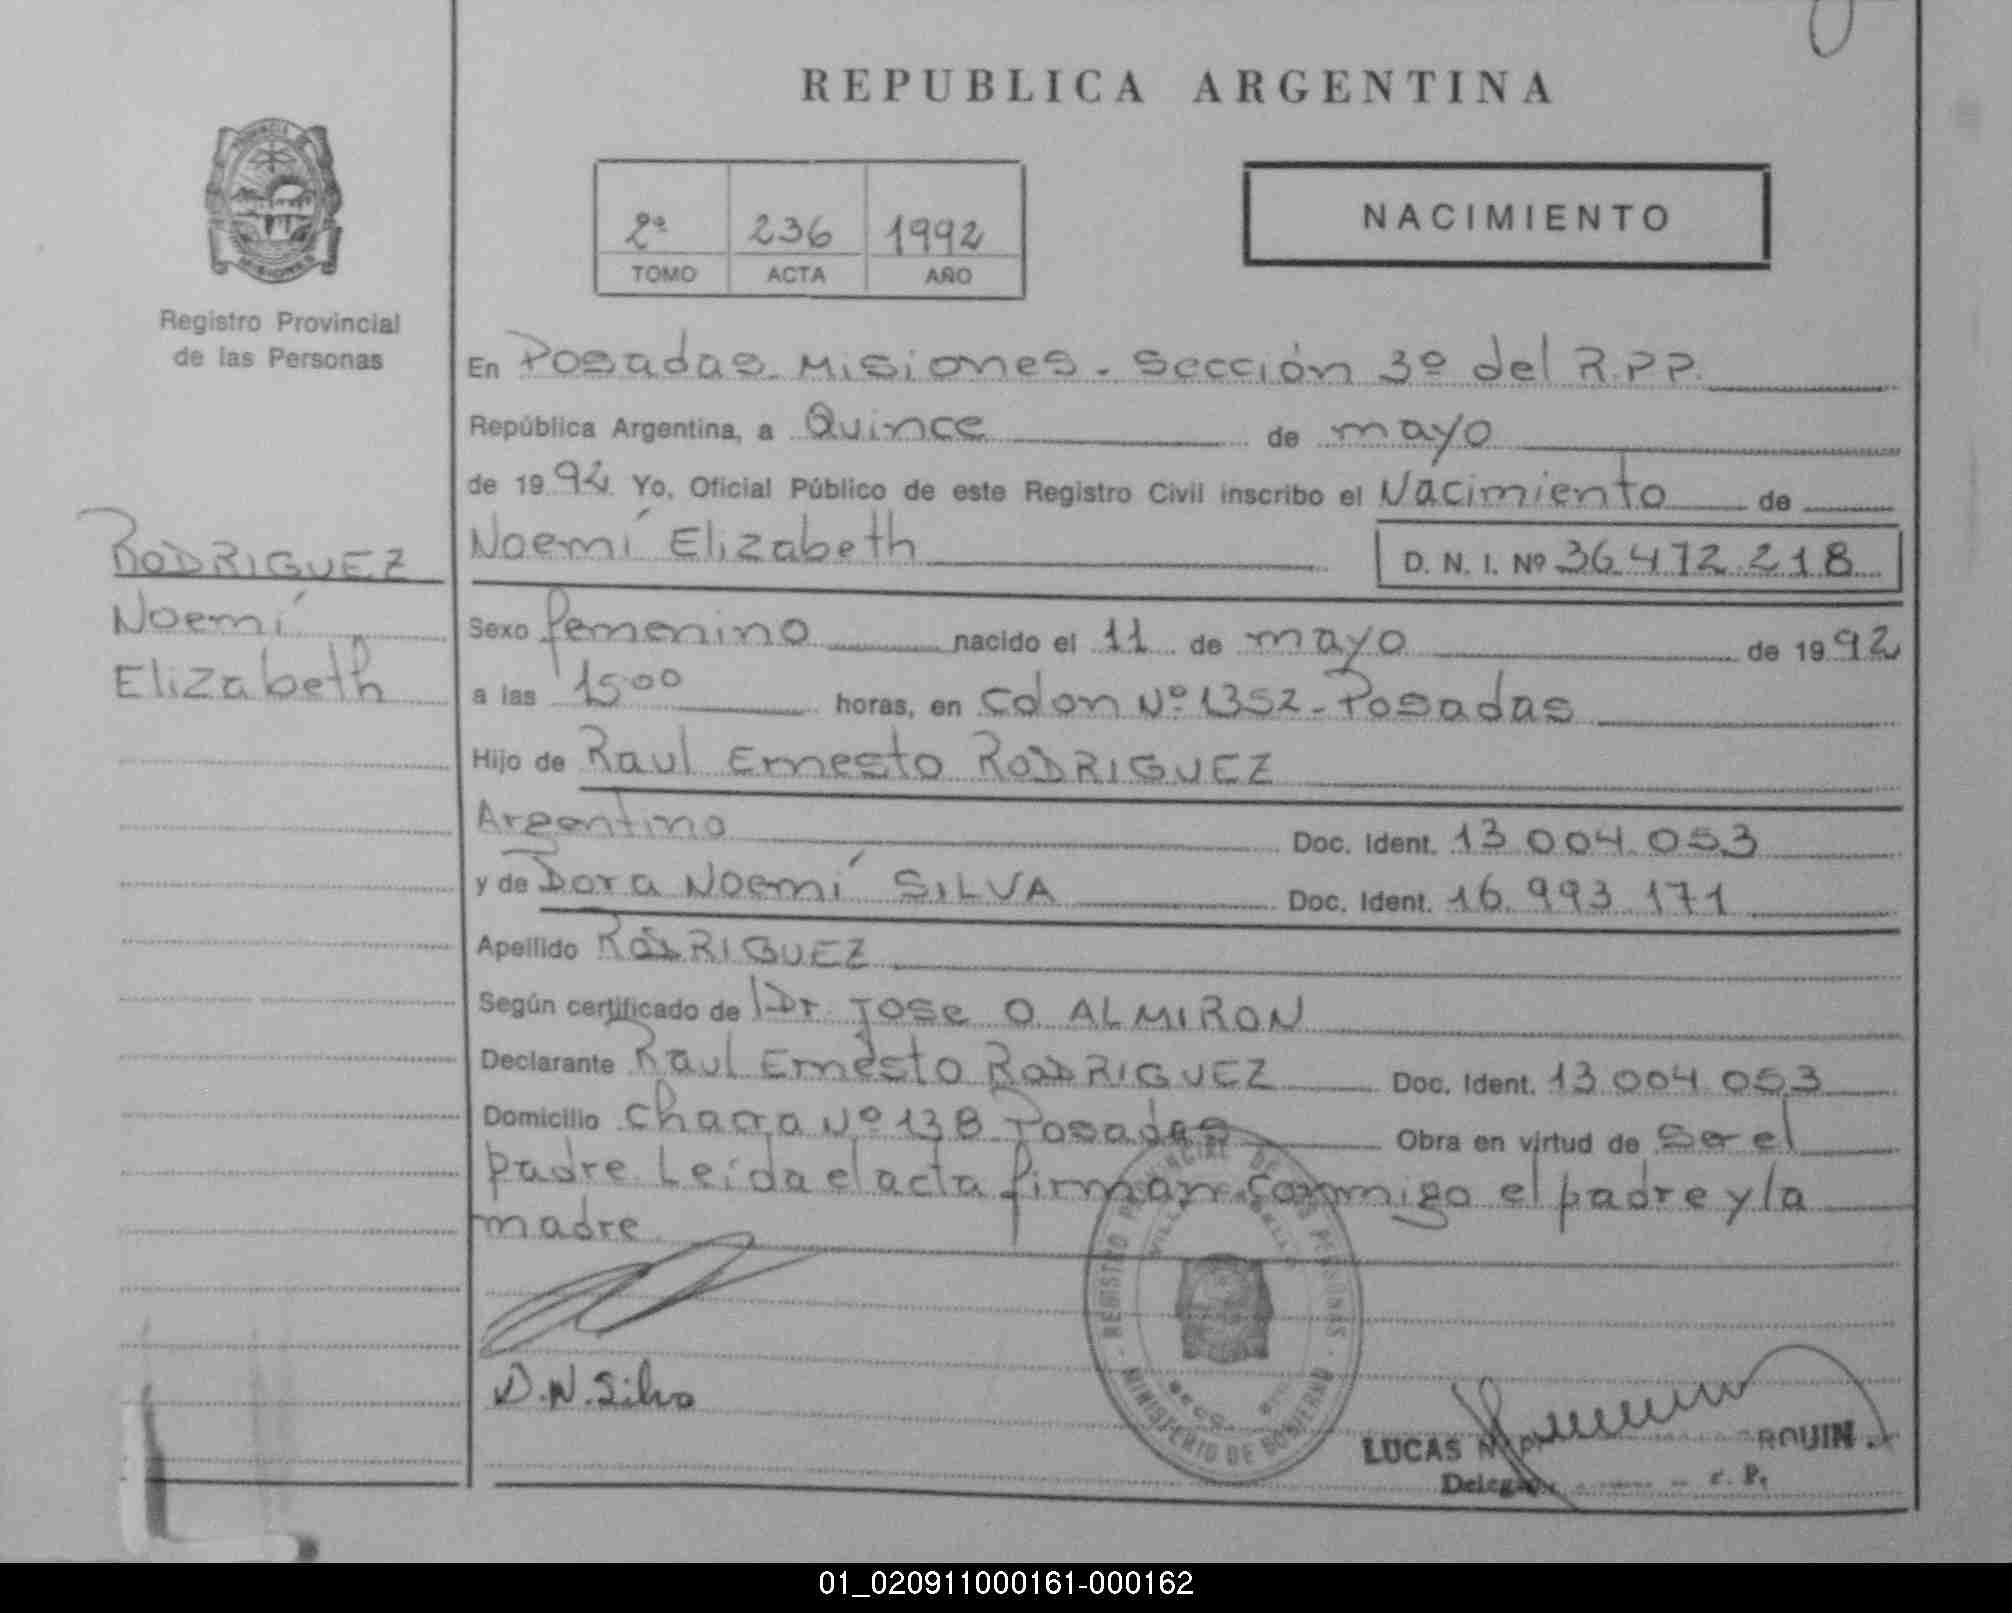 REPUBLICA ARGENTINA
2º 236 1992
TOMO ACTA AÑO
NACIMIENTO
Registro Provincial
de las Personas
En Posadas Misiones. Sección 3º del R.P.P.
República Argentina, a Quince de mayo
de 1992 Yo, Oficial Público de este Registro Civil inscribo el Nacimiento de
Noemí Elizabeth D. N. I. Nº 36.472.218
RODRIGUEZ
Noemí
Elizabeth
Sexo femenino nacido el 11 de mayo de 1992
a las 15 00 horas, en Colon Nº 1352 - Posadas
Hijo de Raul Ernesto RODRIGUEZ
Argentino Doc. Ident. 13.004.053
y de Dora Noemí SILVA Doc. Ident. 16.993.171
Apellido RODRIGUEZ
Según certificado de Dr. Jose O. ALMIRON
Declarante Raul Ernesto RODRIGUEZ Doc. Ident. 13.004.053
Domicilio Chacra Nº 138 Posadas Obra en virtud de ser el
padre. Leída el acta firman conmigo el padre y la
madre
REGISTRO PROVINCIAL DE LAS PERSONAS
MINISTERIO DE GOBIERNO
D. N. Silva
LUCAS
01_020911000161-000162